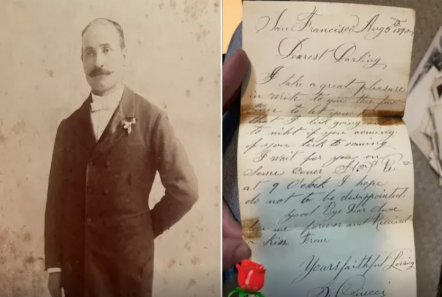 San Francisco Aug 5th 189
Dearest Darling
I take a great pleasure
in write to you this few
to let you
that I feel going
to night if you coming
if you like to coming
I wait for you on
Same Corner
at 9 Oclock I hope
do not to be disappointed
Good Bye
forever and Receive
a Kiss From
Yours faithful Loving